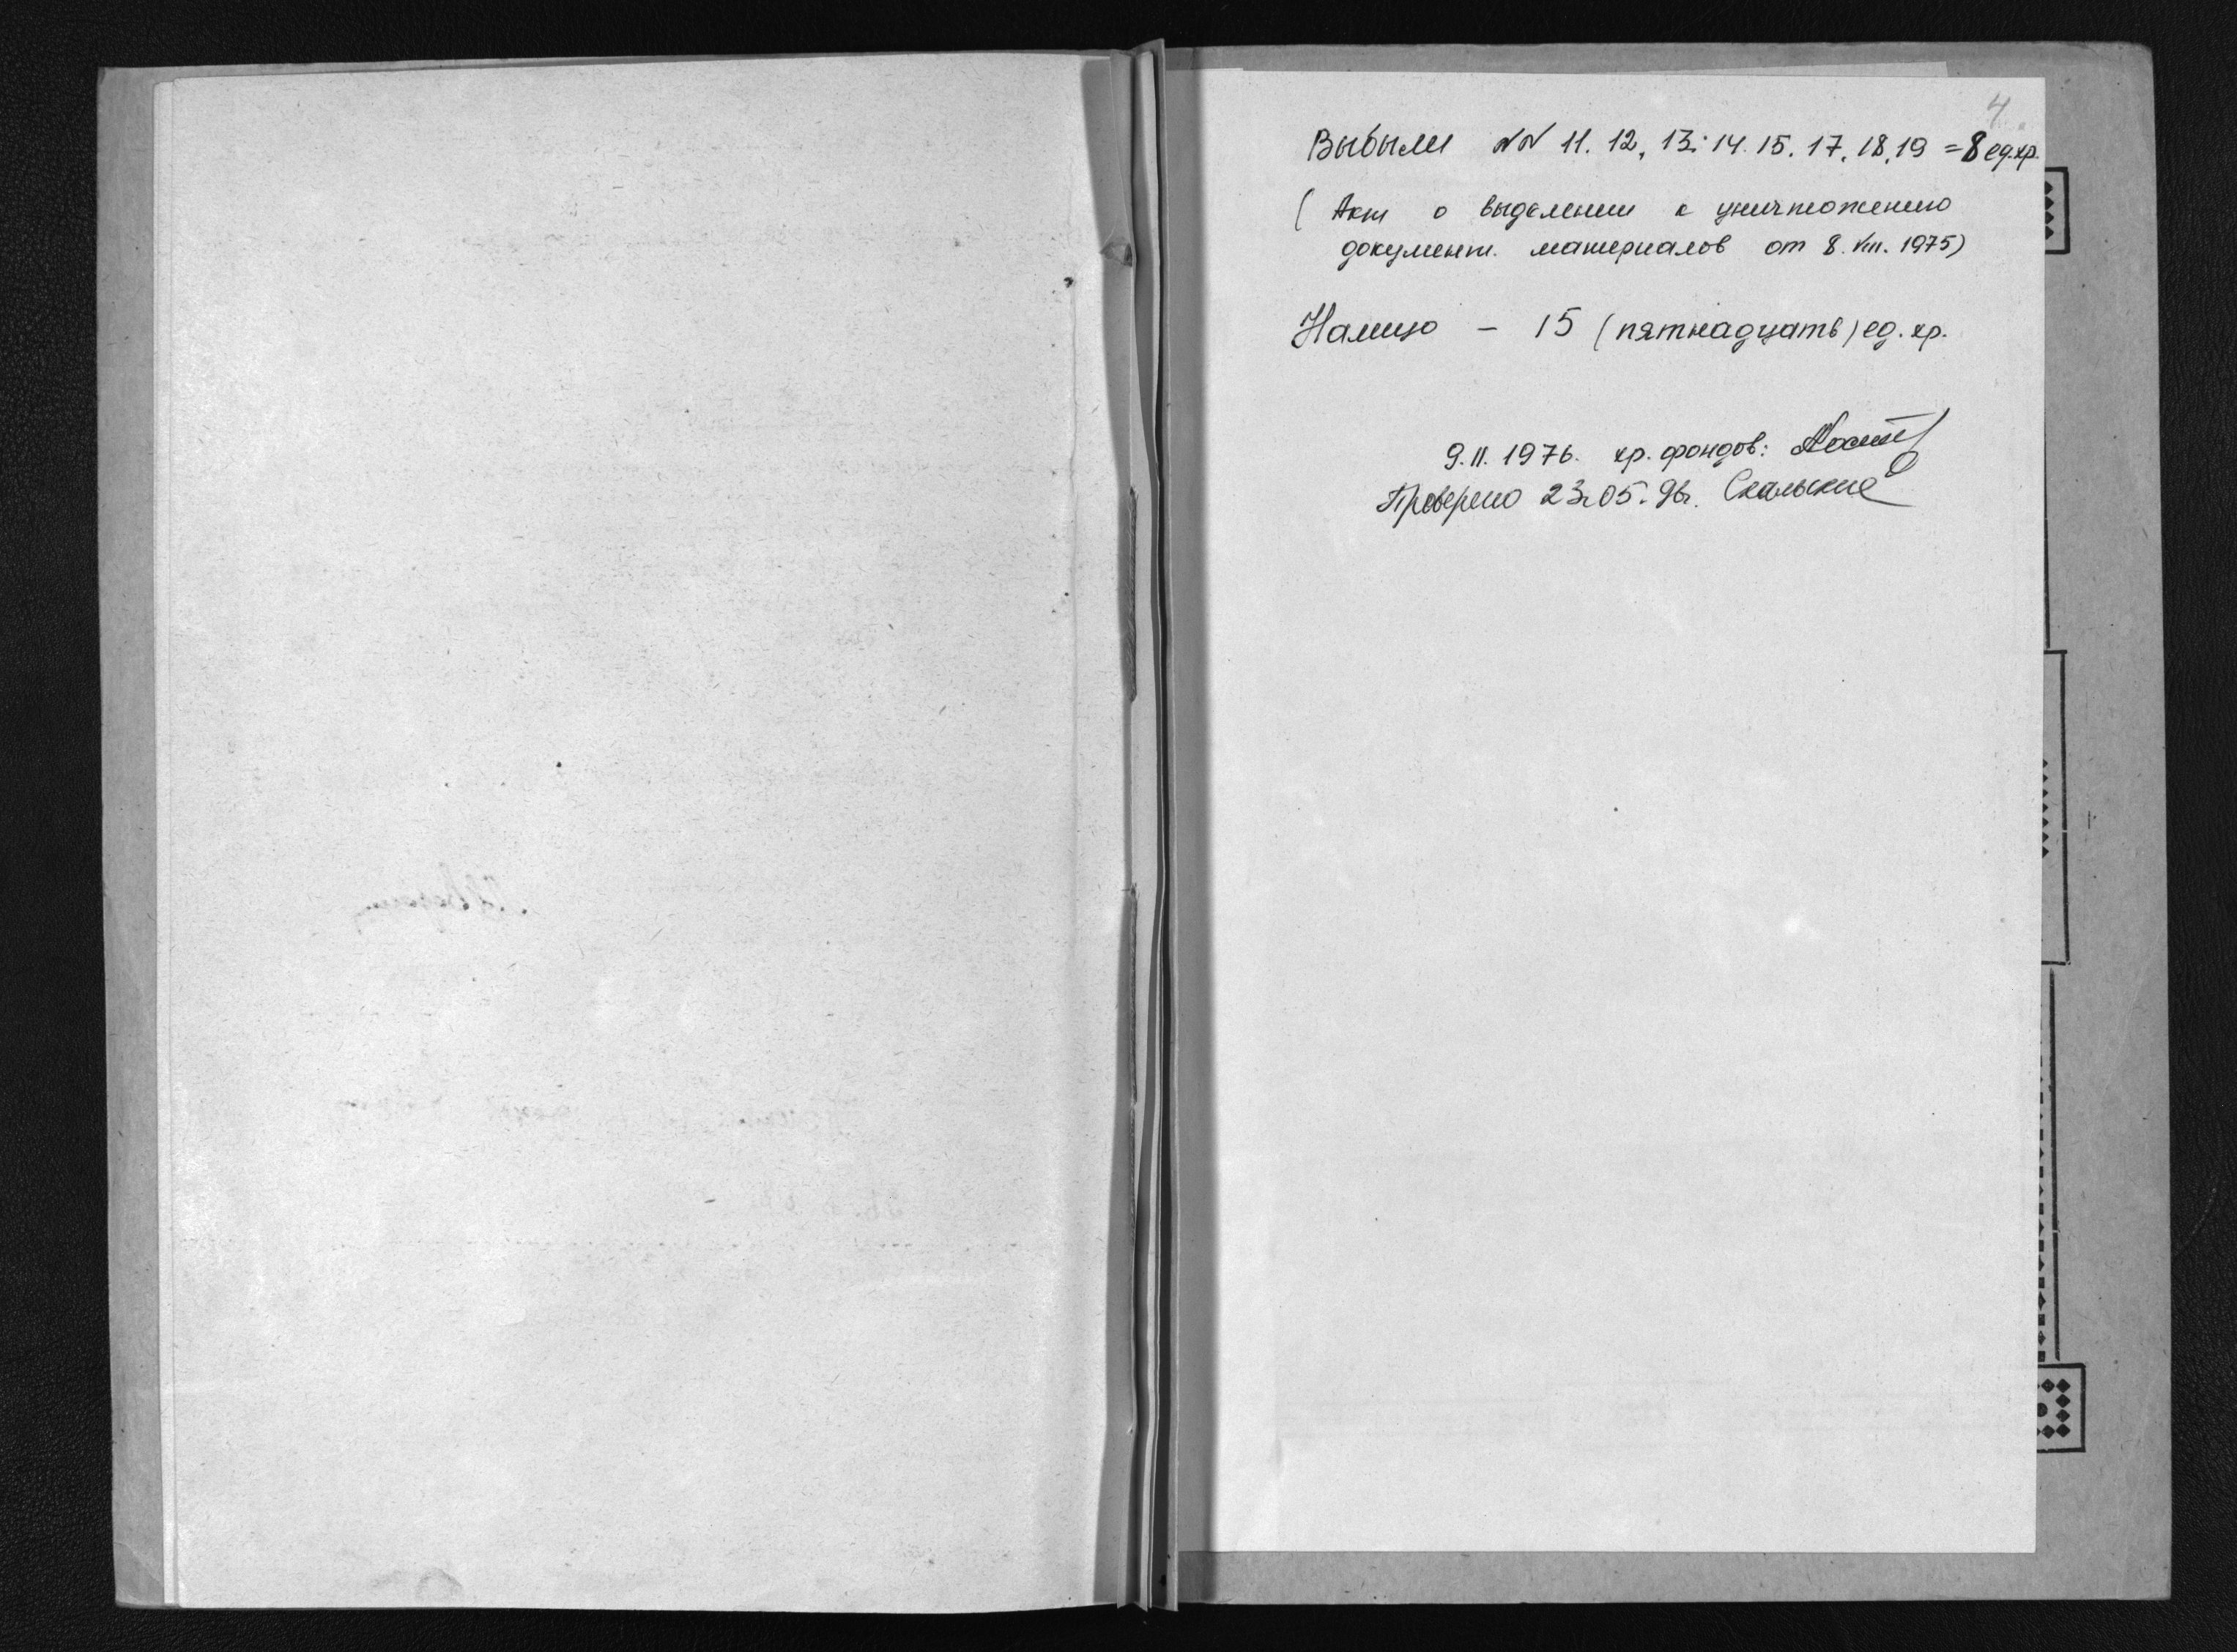 4
Выбыли №№ 11. 12, 13. 14. 15. 17. 18, 19 = 8 ед.хр.
( Акт о выделении к уничтожению
документ. материалов от 8. VIII. 1975)
Налицо – 15 (пятнадцать) ед. хр.
9. II. 1976. хр. фондов:
Проверено 23.05.96г.